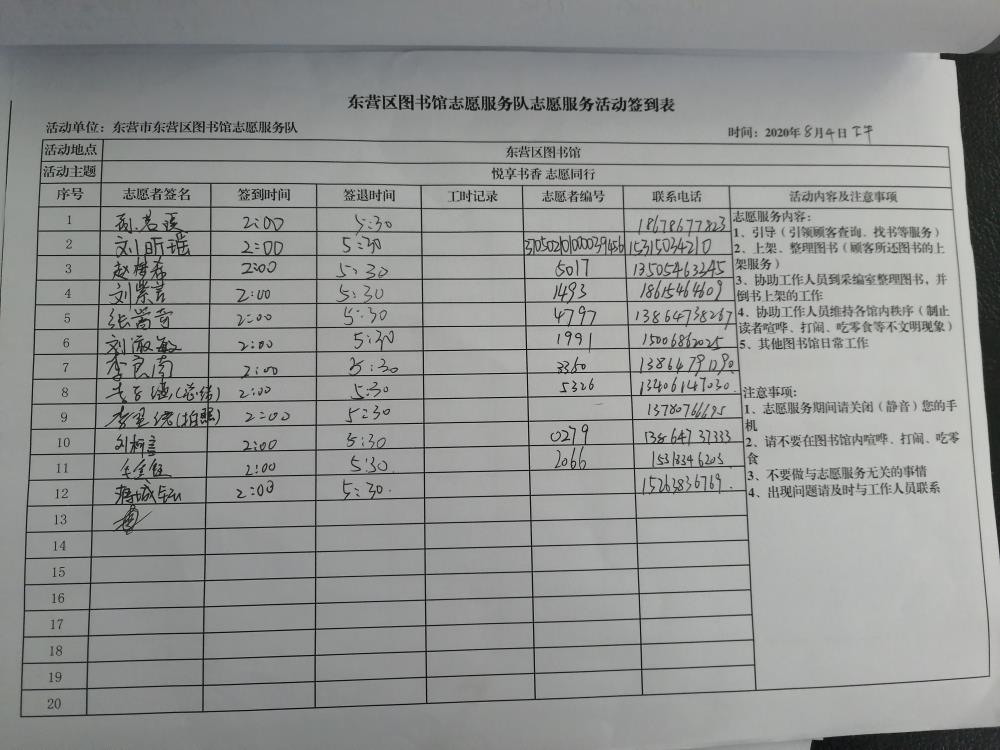 东营区图书馆志愿服务队志愿服务活动签到表
活动单位：东营市东营区图书馆志愿服务队 时间：2020年8月4日 下午
活动地点 东营区图书馆
活动主题 悦享书香 志愿同行
序号 志愿者签名 签到时间 签退时间 工时记录 志愿者编号 联系电话 活动内容及注意事项
1 2:00 5:30 18678677823
2 刘昕瑶 2:00 5:30 15315034210
3 2:00 5:30 5017 13505463245
4 刘紫言 2:00 5:30 1493 18615464609
5 2:00 5:30 4797 13864738267
6 刘淑敏 2:00 5:30 1991 15006862025
7 李良南 2:00 5:30 3360
8 2:00 5:30 5326 13406147030
9 (拍照) 2:00 5:30 13780766695
10 2:00 5:30 0279 13864737333
11 2:00 5:30 2066
12 2:00 5:30 15263836769
13
14
15
16
17
18
19
20
志愿服务内容：
1、引导（引领顾客查询、找书等服务）
2、上架、整理图书（顾客所还图书的上
架服务）
3、协助工作人员到采编室整理图书，并
倒书上架的工作
4、协助工作人员维持各馆内秩序（制止
读者喧哗、打闹、吃零食等不文明现象）
5、其他图书馆日常工作
注意事项：
1、志愿服务期间请关闭（静音）您的手
机
2、请不要在图书馆内喧哗、打闹、吃零
食
3、不要做与志愿服务无关的事情
4、出现问题请及时与工作人员联系